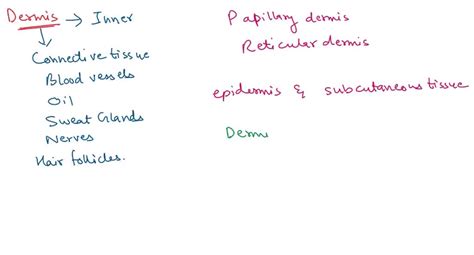 Dermis → Inner
Connective tissue
Blood vessels
Oil
Sweat Glands
Nerves
Hair follicles.
Papillary dermis
Reticular dermis
epidermis & subcutaneous tissue
Dermu